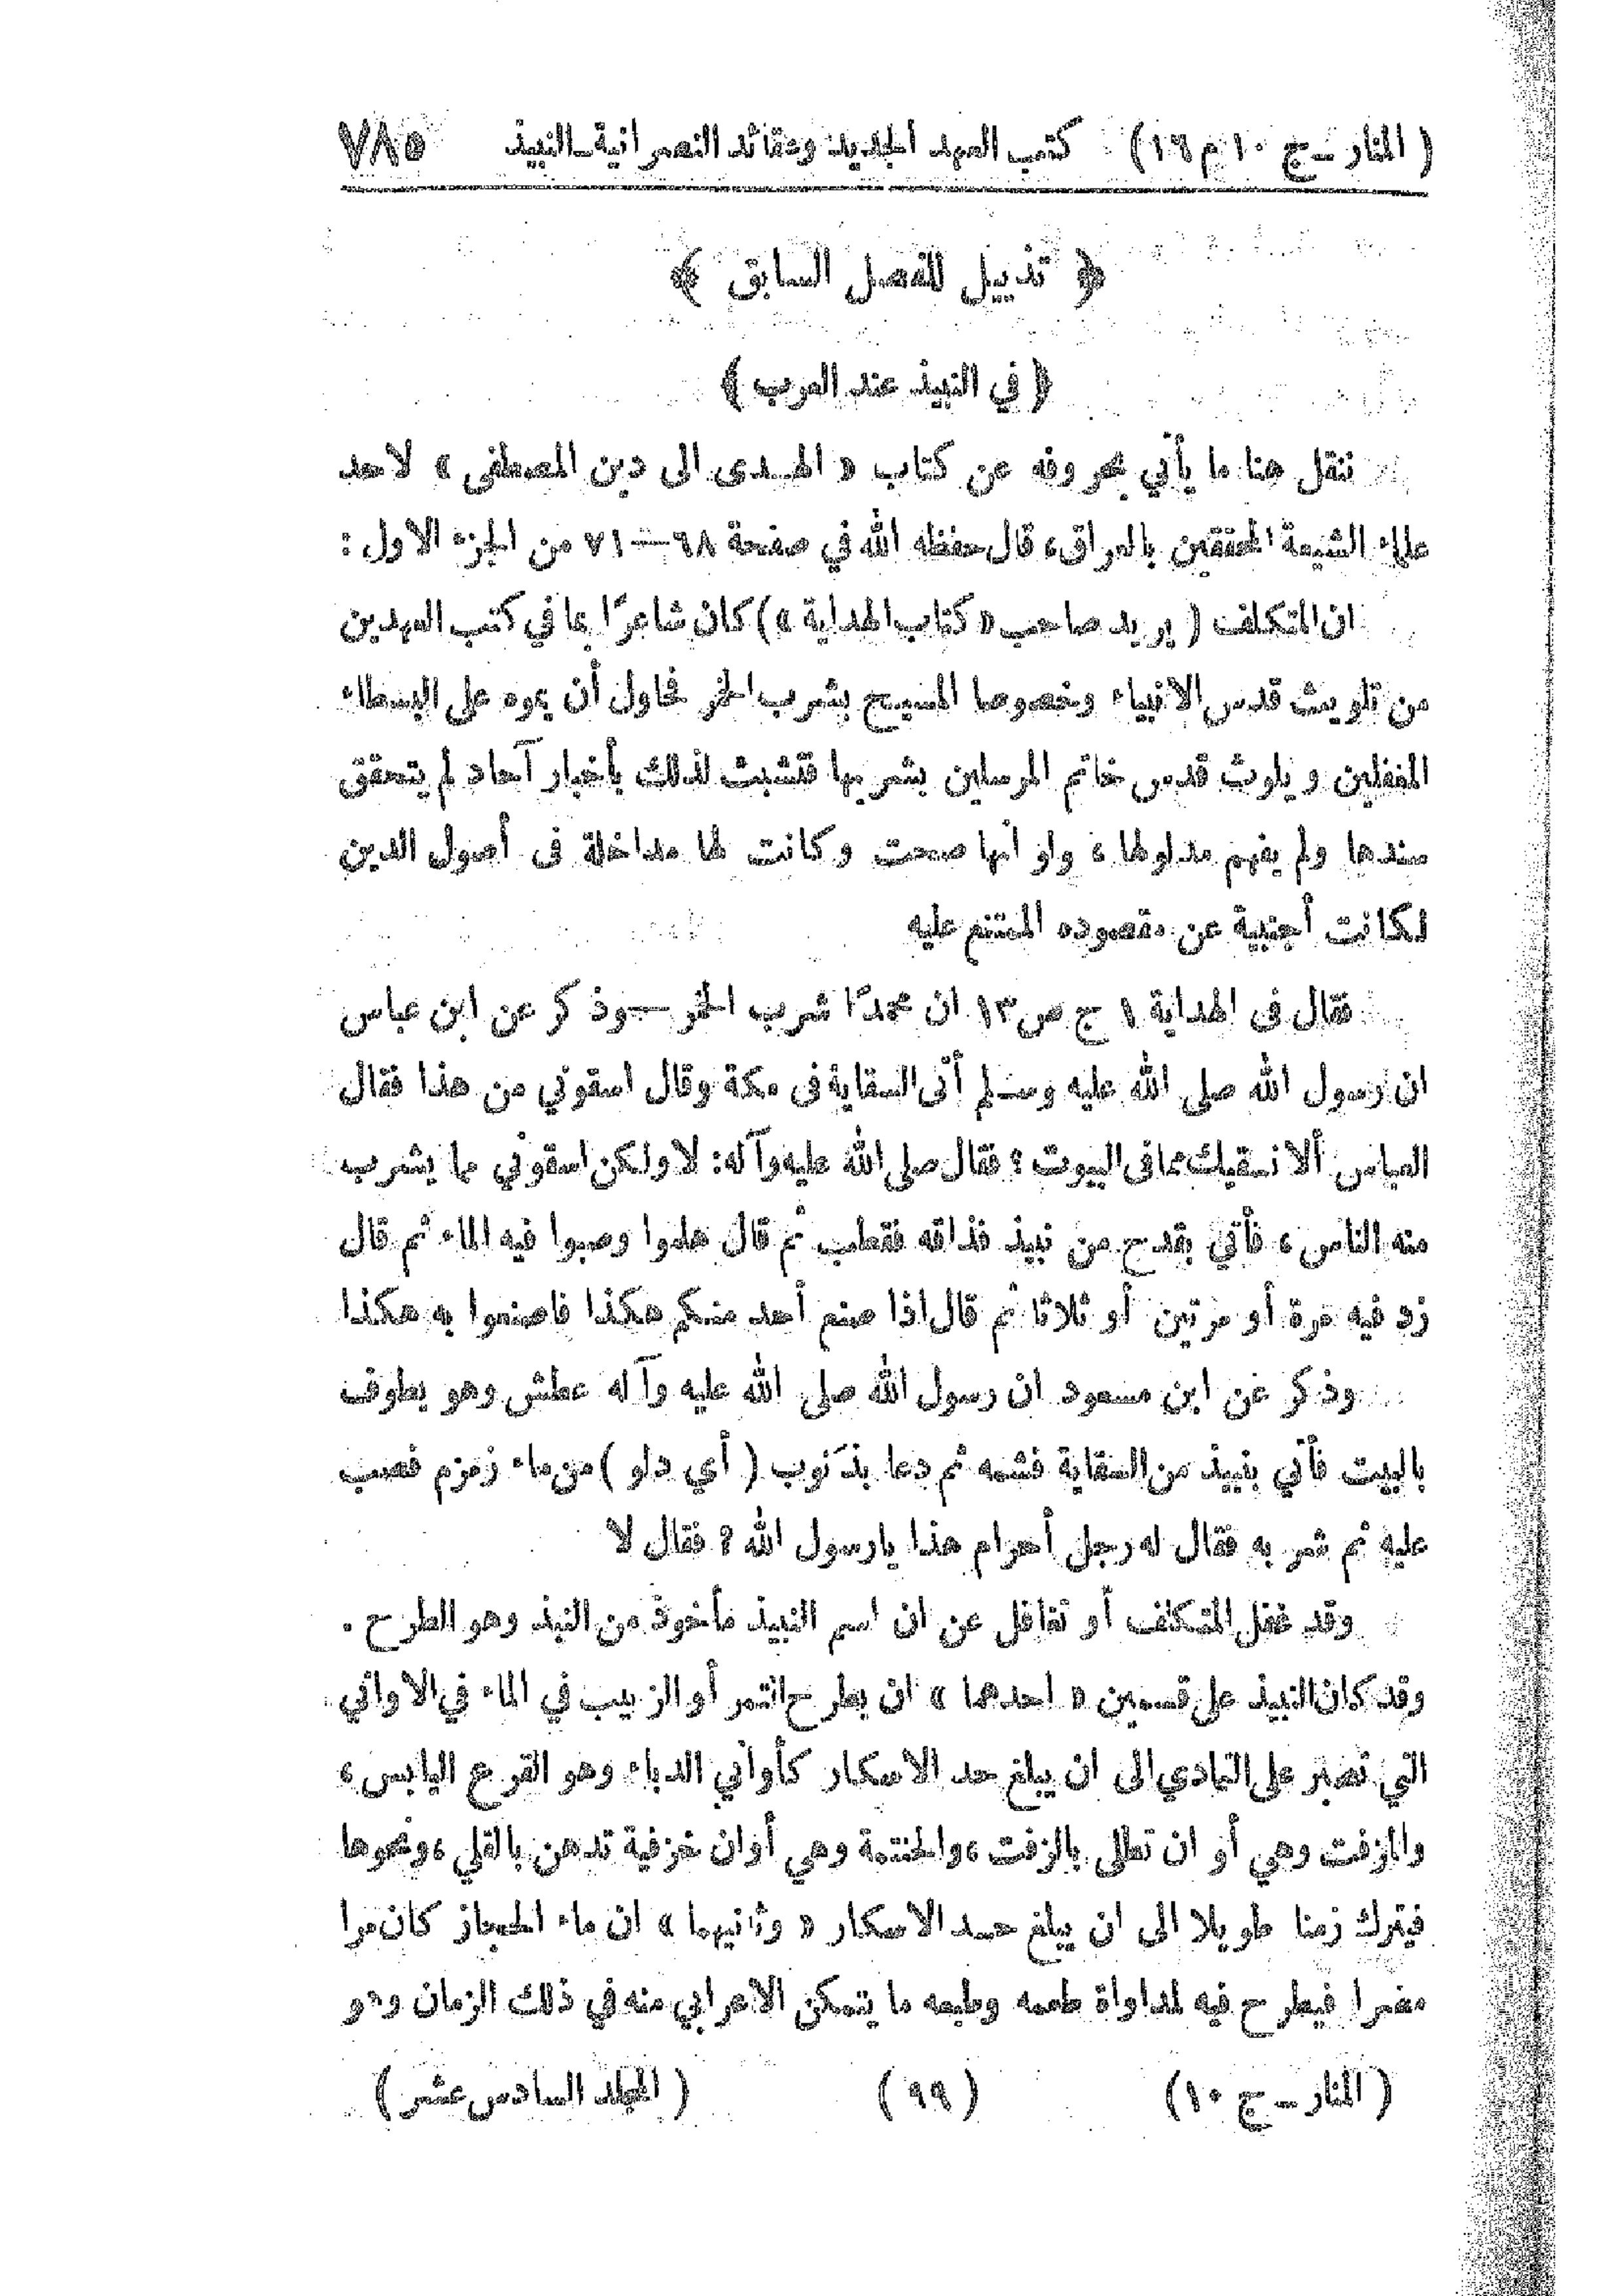 ( المنار ــ ج ١٠ م ١٦ ) كتب العهد الجديد وعقائد النصرانية ــ النبيذ ٧٨٥
﴿ تذييل للفصل السابق ﴾
﴿ في النبيذ عند العرب ﴾
ننقل هنا ما يأتي بحروفه عن كتاب « الهـدى الى دين المصطفى » لاحد
علماء الشيعة المحققين بالعراق، قال حفظه الله في صفحة ٦٨ــ٧١ من الجزء الاول :
ان المتكلف ( يريد صاحب « كتاب الهداية » ) كان شاعرًا بما في كتب العهدين
من تلويث قدس الانبياء وخصوصا المسيح بشرب الخمر فحاول أن يموه على البسطاء
المغفلين ويلوث قدس خاتم المرسلين بشربها فتشبث لذلك بأخبار آحاد لم يتحقق
سندها ولم يفهم مدلولها ، ولو أنها صحت وكانت لها مداخلة فى أصول الدين
لكانت أجنبية عن مقصوده الممتنع عليه
فقال فى الهداية ١ ج ص١٣ ان محمدًا شرب الخمر ــ وذكر عن ابن عباس
ان رسول الله صلى الله عليه وسلم أتى السقاية فى مكة وقال اسقوني من هذا فقال
العباس ألا نسقيك مما فى البيوت ؟ فقال صلى الله عليه وآله: لا ولكن اسقوني مما يشرب
منه الناس ، فأتي بقدح من نبيذ فذاقه فقطب ثم قال هلموا وصبوا فيه الماء ثم قال
زد فيه مرة أو مرتين أو ثلاثا ثم قال اذا صنع أحد منكم هكذا فاصنعوا به هكذا
وذكر عن ابن مسعود ان رسول الله صلى الله عليه وآله عطش وهو يطوف
بالبيت فأتي بنبيذ من السقاية فشمه ثم دعا بذَنوب ( أي دلو ) من ماء زمزم فصب
عليه ثم شربه فقال له رجل أحرام هذا يارسول الله ؟ فقال لا
وقد غفل المتكلف أو تغافل عن ان اسم النبيذ مأخوذ من النبذ وهو الطرح .
وقد كان النبيذ على قسمين « احدهما » ان يطرح التمر أو الزبيب في الماء في الاواني
التي تصبر على التمادي الى ان يبلغ حد الاسكار كأواني الدباء وهو القرع اليابس ،
والمزفت وهي أو ان تطلى بالزفت ، والحنتمة وهي أوان خزفية تدهن بالقلي ، ونحوها
فيترك زمنا طويلا الى ان يبلغ حـد الاسكار « وثانيهما » ان ماء الحجاز كان مرا
مضرا فيطرح فيه لمداواة طعمه وطبعه ما يتمكن الاعرابي منه في ذلك الزمان وهو
( المنار ــ ج ١٠ ) ( ٩٩ ) ( المجلد السادس عشر )